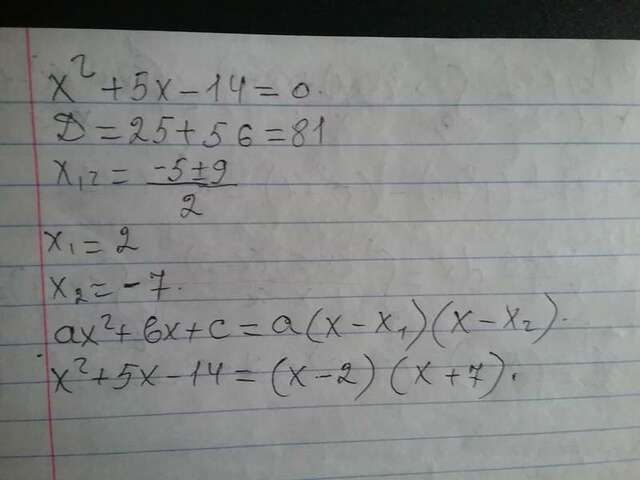 x² + 5x − 14 = 0.
D = 25 + 56 = 81
x₁,₂ = (−5 ± 9) / 2
x₁ = 2
x₂ = −7.
ax² + bx + c = a(x − x₁)(x − x₂).
x² + 5x − 14 = (x − 2)(x + 7).